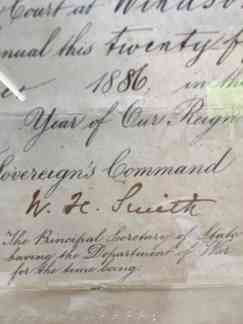 Court at Windsor
nual this twenty
1886, in the
Year of Our Reign
Sovereign's Command
W. H. Smith
The Principal Secretary of State
having the Department of War
for the time being.